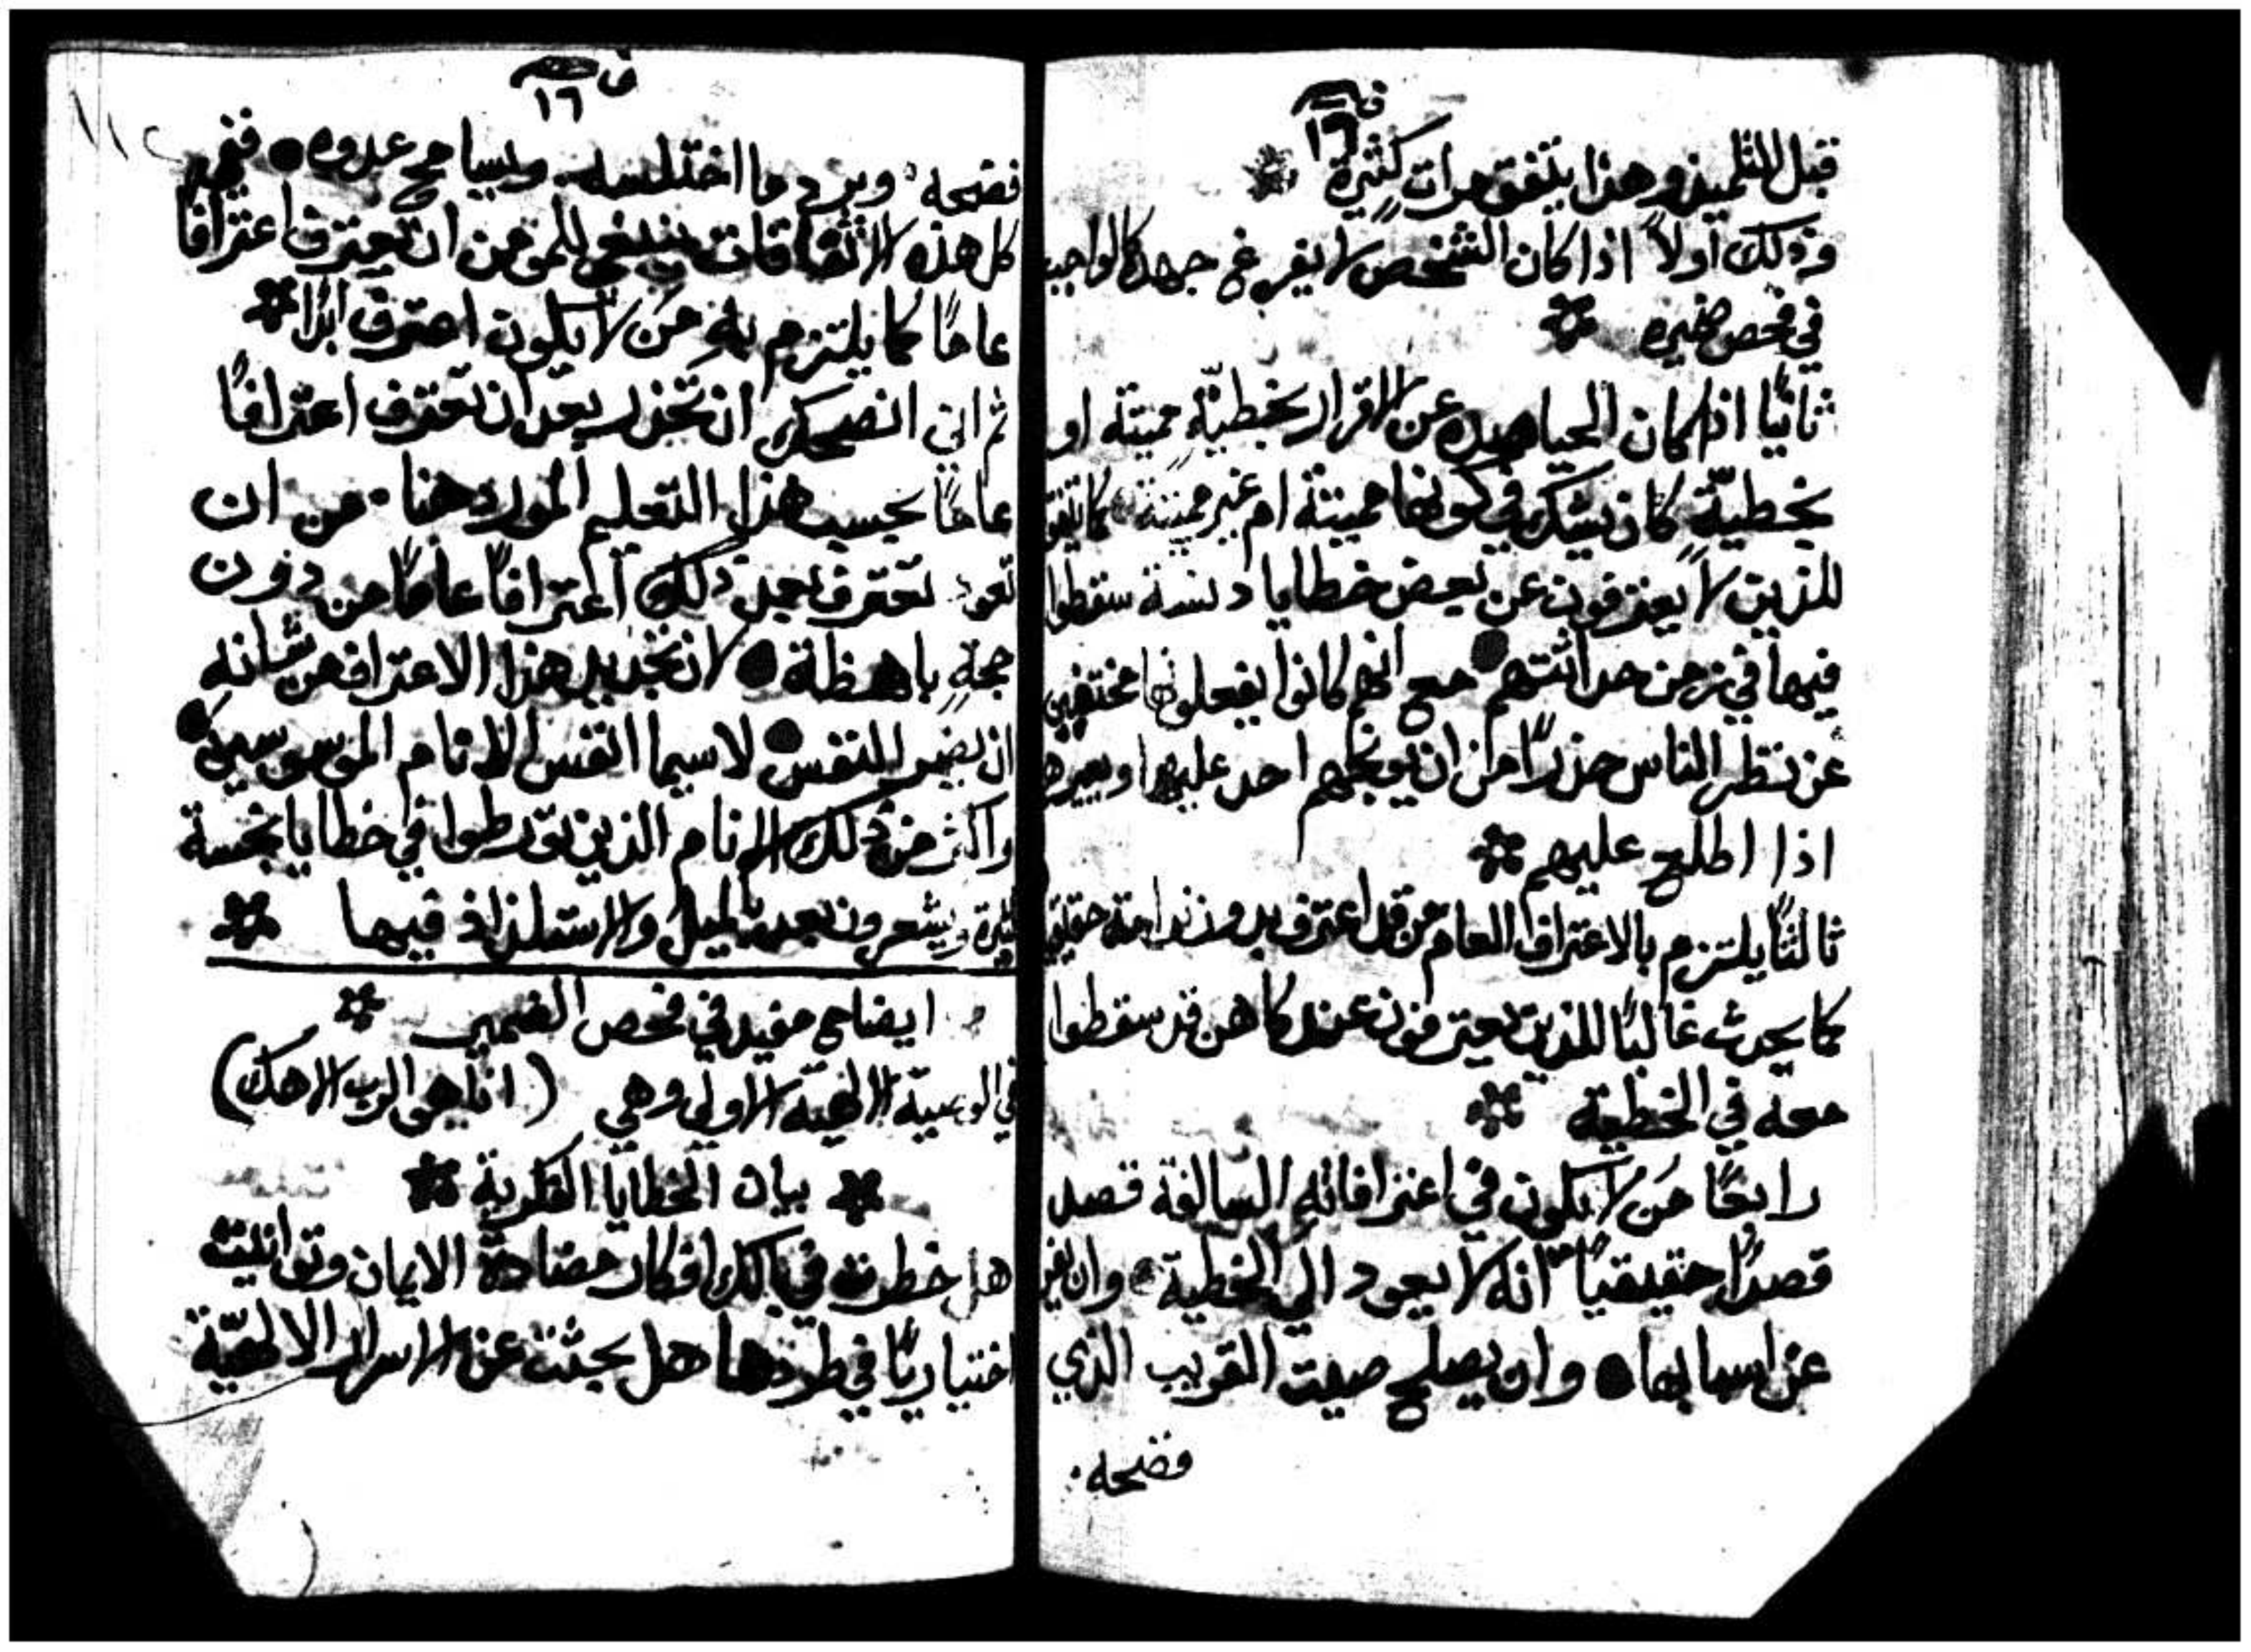 ف
١٦
قبل التلميذ وهذا يتفق مرات كثيرة
وذلك اولاً اذا كان الشخص لا يفرغ جهده الواجب
في فحص ضميره
ثانيًا اذا كان الحيا صده عن الاقرار بخطيّة مميتة او
بخطيّة كان يشك في كونها مميتة ام غير مميتة كما يتفق
للذين لا يعترفون عن بعض خطايا دنسة سقطوا
فيها في زمن حداثتهم مع انهم كانوا يفعلونها مختفيين
عن نظر الناس حذرًا من ان يوبخهم احد عليها ويعيرهم
اذا اطلع عليهم
ثالثًا يلتزم بالاعتراف العام من قد اعترف بدون ندامة حقيقية
كما يحدث غالبًا للذين يعترفون عند كاهن قد سقطوا
معه في الخطية
رابعًا مَن لا يكون في اعترافاته السالفة قصد
قصدًا حقيقيًا انه لا يعود الي الخطية وان يفر
عن اسبابها وان يصلح صيت القريب الذي
فضحه
ف
١٦
فضحه ويرد ما اختلسه ويسامح عدوه ففي
كل هذه الاتفاقات ينبغي للمومن ان يعترف اعترافًا
عامًا كما يلتزم به مَن لا يكون اعترف ابدًا
ثم اني انصحك ان تحذر بعد ان تعترف اعترافًا
عامًا بحسب هذا التعليم المورد هنا من ان
تعود تعترف بعد ذلك اعترافًا عامًا من دون
حجةٍ باهظة لان تجديد هذا الاعتراف من شانه
ان يضير للنفس لاسيما انفس الانام الموسوسين
واكثر من ذلك الانام الذين تورطوا في خطايا نجسة
كثيرة ويشعرون بعد بالميل والاستلذاذ فيها
ايضاح مفيد في فحص الضمير
في الوصية الالهية الاولي وهي (انا هو الرب الاهك)
بيان الخطايا الفكرية
هل خطرت في بالك افكار مضادة الايمان وتوانيت
اختياريًا في طردها هل بحثت عن الاسرار الالهيّة